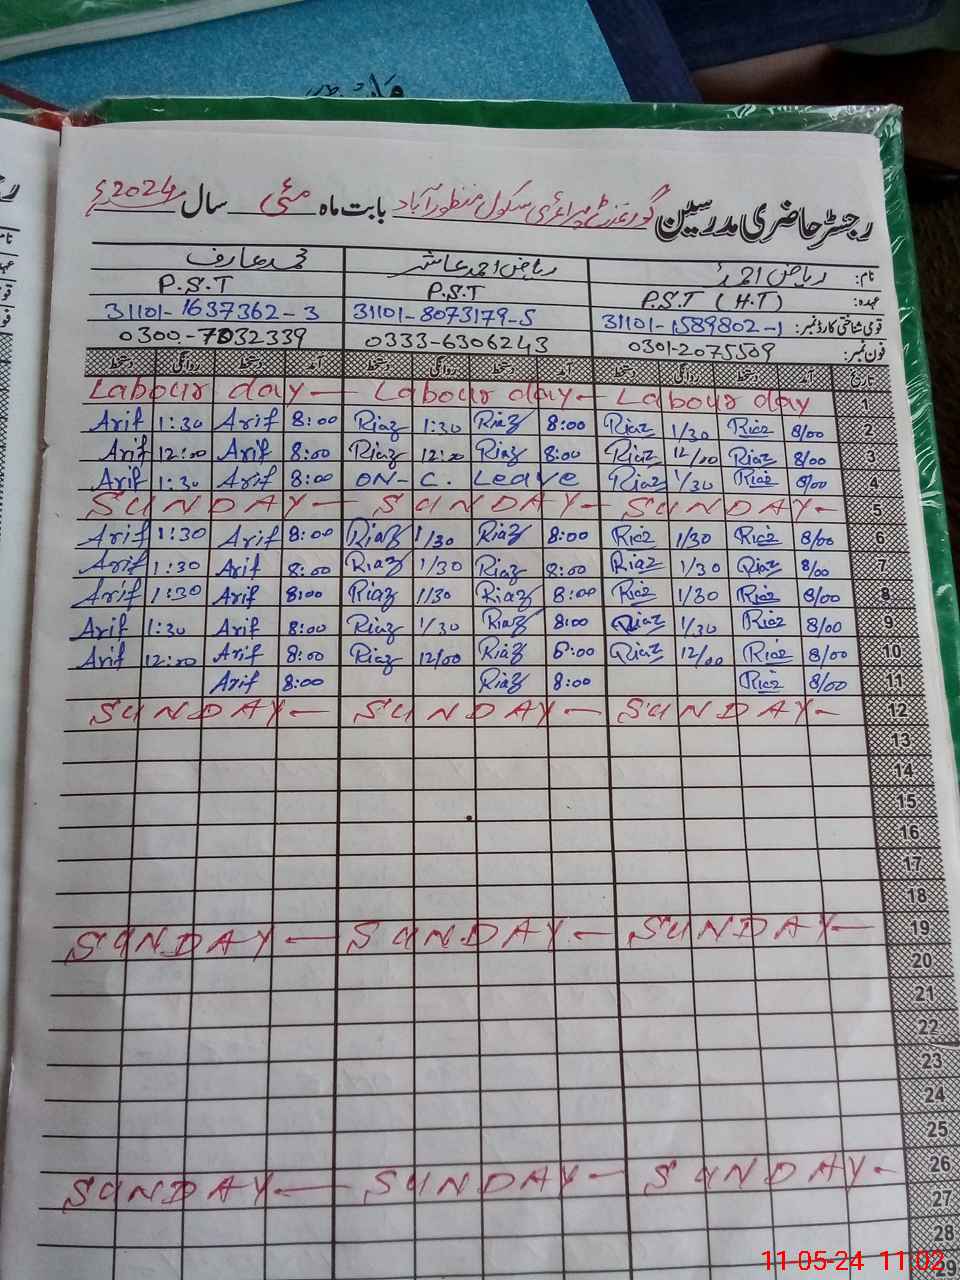 رجسٹر حاضری مدرسین گورنمنٹ پرائمری سکول منظور آباد بابت ماہ مئی سال 2024ء
نام: ریاض احمد ریاض احمد عاشر محمد عارف
عہدہ: P.S.T (H.T) P.S.T P.S.T
قومی شناختی کارڈ نمبر: 31101-1589802-1 31101-8073179-5 31101-1637362-3
فون نمبر: 0301-2075509 0333-6306243 0300-7032339
تاریخ آمد دستخط روانگی دستخط آمد دستخط روانگی دستخط آمد دستخط روانگی دستخط
Labour day — Labour day — Labour day 1
Arif 1:30 Arif 8:00 Riaz 1:30 Riaz 8:00 Riaz 1/30 Riaz 8/00 2
Arif 12:00 Arif 8:00 Riaz 12:00 Riaz 8:00 Riaz 12/00 Riaz 8/00 3
Arif 1:30 Arif 8:00 ON- C. Leave Riaz 1/30 Riaz 8/00 4
SUNDAY — SUNDAY — SUNDAY - 5
Arif 1:30 Arif 8:00 Riaz 1/30 Riaz 8:00 Riaz 1/30 Riaz 8/00 6
Arif 1:30 Arif 8:00 Riaz 1/30 Riaz 8:00 Riaz 1/30 Riaz 8/00 7
Arif 1:30 Arif 8:00 Riaz 1/30 Riaz 8:00 Riaz 1/30 Riaz 8/00 8
Arif 1:30 Arif 8:00 Riaz 1/30 Riaz 8:00 Riaz 1/30 Riaz 8/00 9
Arif 12:00 Arif 8:00 Riaz 12/00 Riaz 8:00 Riaz 12/00 Riaz 8/00 10
Arif 8:00 Riaz 8:00 Riaz 8/00 11
SUNDAY — SUNDAY — SUNDAY - 12
13
14
15
16
17
18
SUNDAY — SUNDAY — SUNDAY — 19
20
21
22
23
24
25
SUNDAY — SUNDAY — SUNDAY - 26
27
28
29
11-05-24 11:02